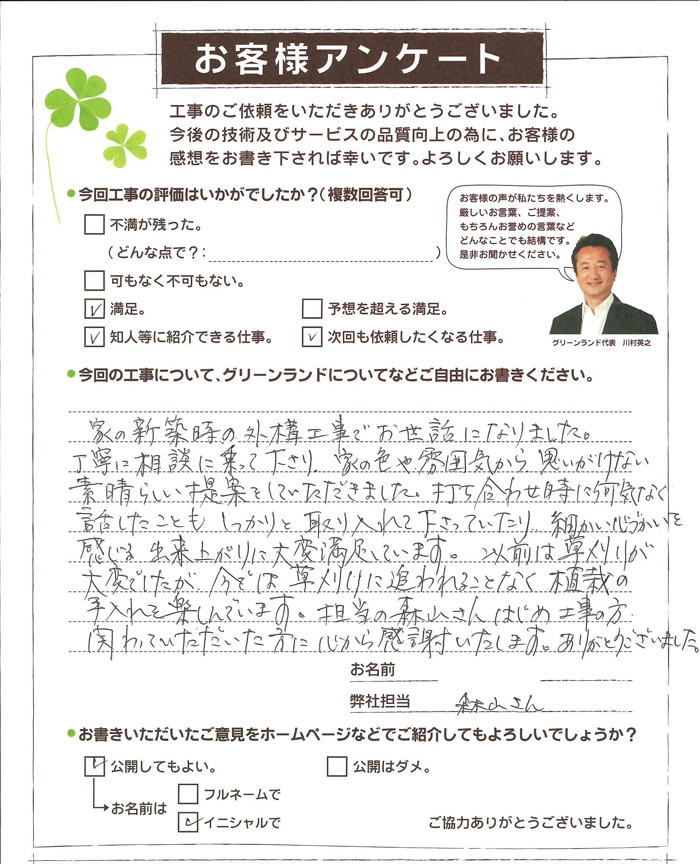 お客様アンケート
工事のご依頼をいただきありがとうございました。
今後の技術及びサービスの品質向上の為に、お客様の
感想をお書き下されば幸いです。よろしくお願いします。
今回工事の評価はいかがでしたか?(複数回答可)
不満が残った。
(どんな点で?: )
可もなく不可もない。
満足。
予想を超える満足。
知人等に紹介できる仕事。
次回も依頼したくなる仕事。
お客様の声が私たちを熱くします。
厳しいお言葉、ご提案、
もちろんお誉めの言葉など
どんなことでも結構です。
是非お聞かせください。
グリーンランド代表 川村英之
今回の工事について、グリーンランドについてなどご自由にお書きください。
家の新築時の外構工事でお世話になりました。
丁寧に相談に乗って下さり、家の色や雰囲気から思いがけない
素晴らしい提案をしていただきました。打ち合わせ時に何気なく
話したことも しっかりと 取り入れて下さっていたり、細かい心づかいを
感じる 出来上がりに大変満足しています。以前は草刈りが
大変でしたが、今では 草刈りに追われることなく 植栽の
手入れを楽しんでいます。担当の森山さんはじめ工事の方
関わっていただいた方に心から感謝いたします。ありがとうございました。
お名前
弊社担当 森山さん
お書きいただいたご意見をホームページなどでご紹介してもよろしいでしょうか?
公開してもよい。
公開はダメ。
お名前は
フルネームで
イニシャルで
ご協力ありがとうございました。